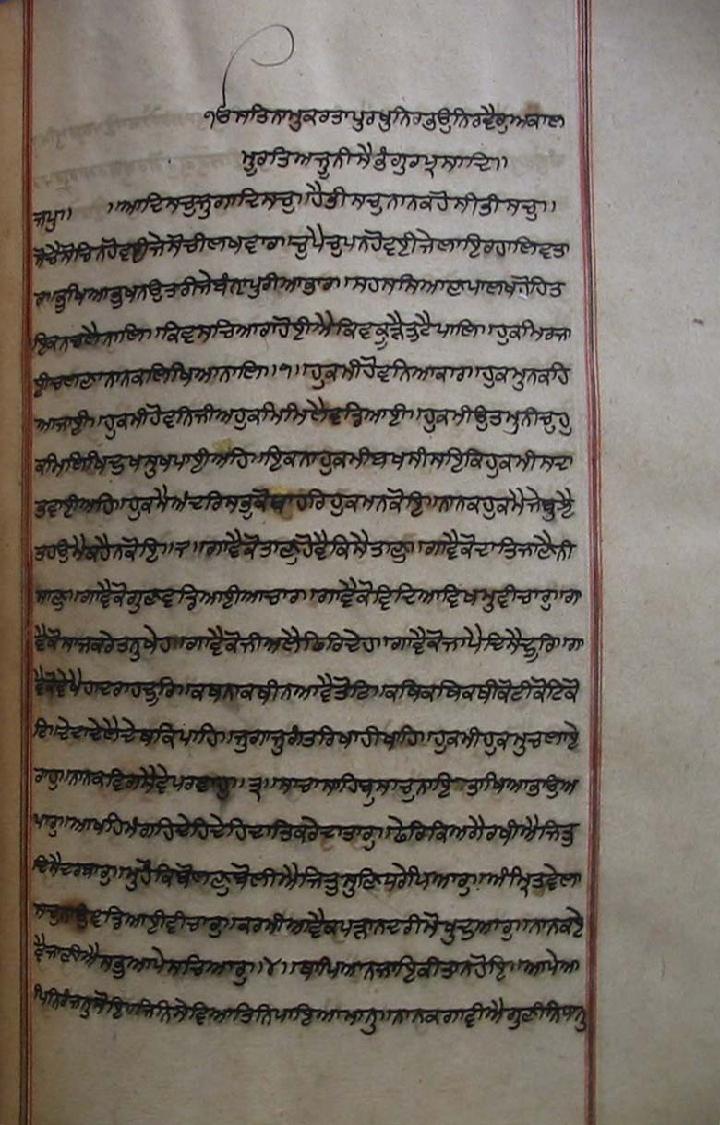 ੴਸਤਿਨਾਮੁਕਰਤਾਪੁਰਖੁਨਿਰਭਉਨਿਰਵੈਰੁਅਕਾਲ
ਮੂਰਤਿਅਜੂਨੀਸੈਭੰਗੁਰਪ੍ਰਸਾਦਿ॥
ਜਪੁ॥ ॥ਆਦਿਸਚੁਜੁਗਾਦਿਸਚੁ॥ਹੈਭੀਸਚੁਨਾਨਕਹੋਸੀਭੀਸਚੁ॥
ਸੋਚੈਸੋਚਿਨਹੋਵਈਜੇਸੋਚੀਲਖਵਾਰ॥ਚੁਪੈਚੁਪਨਹੋਵਈਜੇਲਾਇਰਹਾਲਿਵਤਾ
ਰ॥ਭੁਖਿਆਭੁਖਨਉਤਰੀਜੇਬੰਨਾਪੁਰੀਆਭਾਰ॥ਸਹਸਸਿਆਣਪਾਲਖਹੋਹਿਤ
ਇਕਨਚਲੈਨਾਲਿ॥ਕਿਵਸਚਿਆਰਾਹੋਈਐਕਿਵਕੂੜੈਤੁਟੈਪਾਲਿ॥ਹੁਕਮਿਰਜਾ
ਈਚਲਣਾਨਾਨਕਲਿਖਿਆਨਾਲਿ॥੧॥ਹੁਕਮੀਹੋਵਨਿਆਕਾਰ॥ਹੁਕਮੁਨਕਹਿ
ਆਜਾਈ॥ਹੁਕਮੀਹੋਵਨਿਜੀਅਹੁਕਮਿਮਿਲੈਵਡਿਆਈ॥ਹੁਕਮੀਉਤਮੁਨੀਚੁਹੁ
ਕਮਿਲਿਖਿਦੁਖਸੁਖਪਾਈਅਹਿ॥ਇਕਨਾਹੁਕਮੀਬਖਸੀਸਇਕਿਹੁਕਮੀਸਦਾ
ਭਵਾਈਅਹਿ॥ਹੁਕਮੈਅੰਦਰਿਸਭੁਕੋਬਾਹਰਿਹੁਕਮਨਕੋਇ॥ਨਾਨਕਹੁਕਮੈਜੇਬੁਝੈ
ਤਹਉਮੈਕਹੈਨਕੋਇ॥੨॥ਗਾਵੈਕੋਤਾਣੁਹੋਵੈਕਿਸੈਤਾਣੁ॥ਗਾਵੈਕੋਦਾਤਿਜਾਣੈਨੀ
ਸਾਣੁ॥ਗਾਵੈਕੋਗੁਣਵਡਿਆਈਆਚਾਰ॥ਗਾਵੈਕੋਵਿਦਿਆਵਿਖਮੁਵੀਚਾਰੁ॥ਗਾ
ਵੈਕੋਸਾਜਕਰੇਤਨੁਖੇਹ॥ਗਾਵੈਕੋਜੀਅਲੈਫਿਰਿਦੇਹ॥ਗਾਵੈਕੋਜਾਪੈਦਿਸੈਦੂਰਿ॥ਗਾ
ਵੈਕੋਵੇਖੈਹਾਦਰਾਹਦੂਰਿ॥ਕਥਨਾਕਥੀਨਆਵੈਤੋਟਿ॥ਕਥਿਕਥਿਕਥੀਕੋਟੀਕੋਟਿਕੋ
ਟਿ॥ਦੇਦਾਦੇਲੈਦੇਥਕਿਪਾਹਿ॥ਜੁਗਾਜੁਗੰਤਰਿਖਾਹੀਖਾਹਿ॥ਹੁਕਮੀਹੁਕਮੁਚਲਾਏ
ਰਾਹੁ॥ਨਾਨਕਵਿਗਸੈਵੇਪਰਵਾਹੁ॥੩॥ਸਾਚਾਸਾਹਿਬੁਸਾਚੁਨਾਇਭਾਖਿਆਭਾਉਅ
ਪਾਰੁ॥ਆਖਹਿਮੰਗਹਿਦੇਹਿਦੇਹਿਦਾਤਿਕਰੇਦਾਤਾਰੁ॥ਫੇਰਿਕਿਅਗੈਰਖੀਐਜਿਤੁ
ਦਿਸੈਦਰਬਾਰੁ॥ਮੁਹੌਕਿਬੋਲਣੁਬੋਲੀਐਜਿਤੁਸੁਣਿਧਰੇਪਿਆਰੁ॥ਅੰਮ੍ਰਿਤਵੇਲਾ
ਸਚੁਨਾਉਵਡਿਆਈਵੀਚਾਰੁ॥ਕਰਮੀਆਵੈਕਪੜਾਨਦਰੀਮੋਖੁਦੁਆਰੁ॥ਨਾਨਕਏ
ਵੈਜਾਣੀਐਸਭੁਆਪੇਸਚਿਆਰੁ॥੪॥ਥਾਪਿਆਨਜਾਇਕੀਤਾਨਹੋਇ॥ਆਪੇਆ
ਪਿਨਿਰੰਜਨੁਸੋਇ॥ਜਿਨਿਸੇਵਿਆਤਿਨਿਪਾਇਆਮਾਨੁ॥ਨਾਨਕਗਾਵੀਐਗੁਣੀਨਿਧਾਨੁ